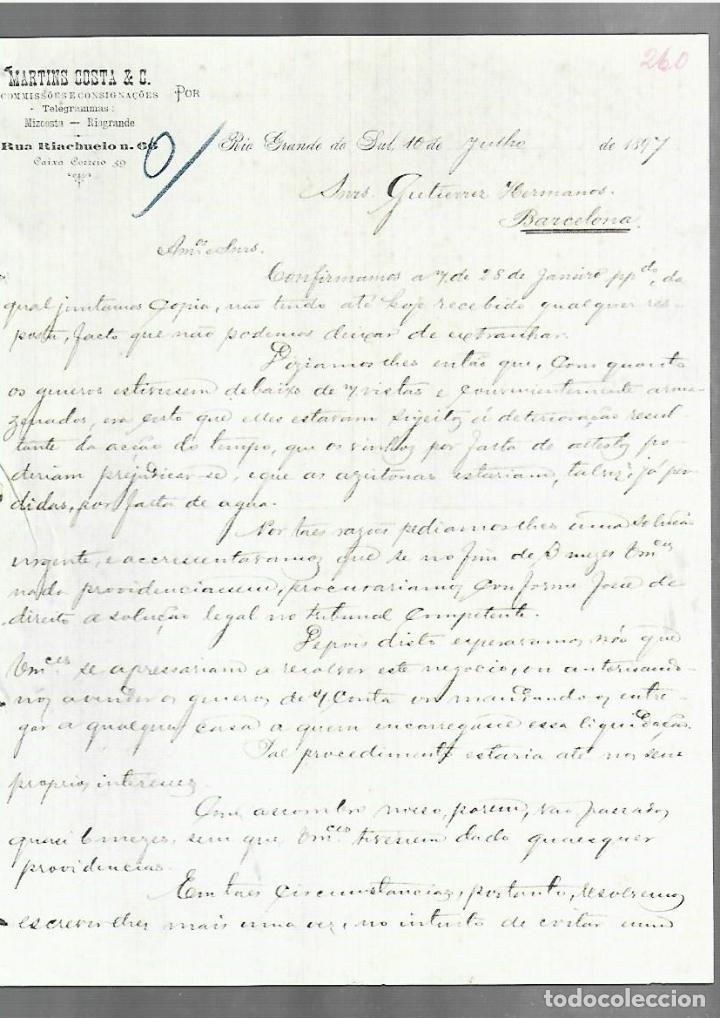 260
MARTINS COSTA & C.
COMMISSÕES E CONSIGNAÇÕES
POR
- Telegrammas:
Mizcosta — Riogrande
Rua Riachuelo n. 66
Caixa Correio 59
Rio Grande do Sul, 10 de Julho de 1897
Snrs. Gutierrez Hermanos.
Barcelona.
Amos e Snrs.
Confirmamos a n/ de 28 de Janeiro ppdo, da
qual juntamos Copia, não tendo até hoje recebido qualquer res-
posta, facto que não podemos deixar de extranhar.
Diziamos-lhes então que, com quanto
os generos estivessem debaixo de n/ vistas e convenientemente arma-
zenados, era certo que elles estavam sugeitos á deterioração resul-
tante da acção do tempo, que os vinhos por falta de attestos po-
deriam prejudicar-se, e que as azeitonas estariam, talvez, já per-
didas, por falta de agua.
Por taes razões pediamos-lhes uma solução
urgente, e accrescentavamos que se no fim de 3 mezes Vmces
nada providenciassem, procurariamos conforme fosse de
direito a solução legal no tribunal competente.
Depois disto esperavamos nós que
Vmces se apressariam a resolver este negocio, ou autorisando-
nos a vender os generos de s/ Conta ou mandando os entre-
gar a qualquer casa a quem encarregasse essa liquidação.
Tal procedimento estaria até nos seus
proprios interesses.
Com assombro nosso, porem, vão passados
quasi 6 mezes, sem que Vmces tivessem dado quaesquer
providencias.
Em taes circumstancias, portanto, resolvemos
escrever-lhes mais uma vez, no intuito de evitar uma
todocoleccion